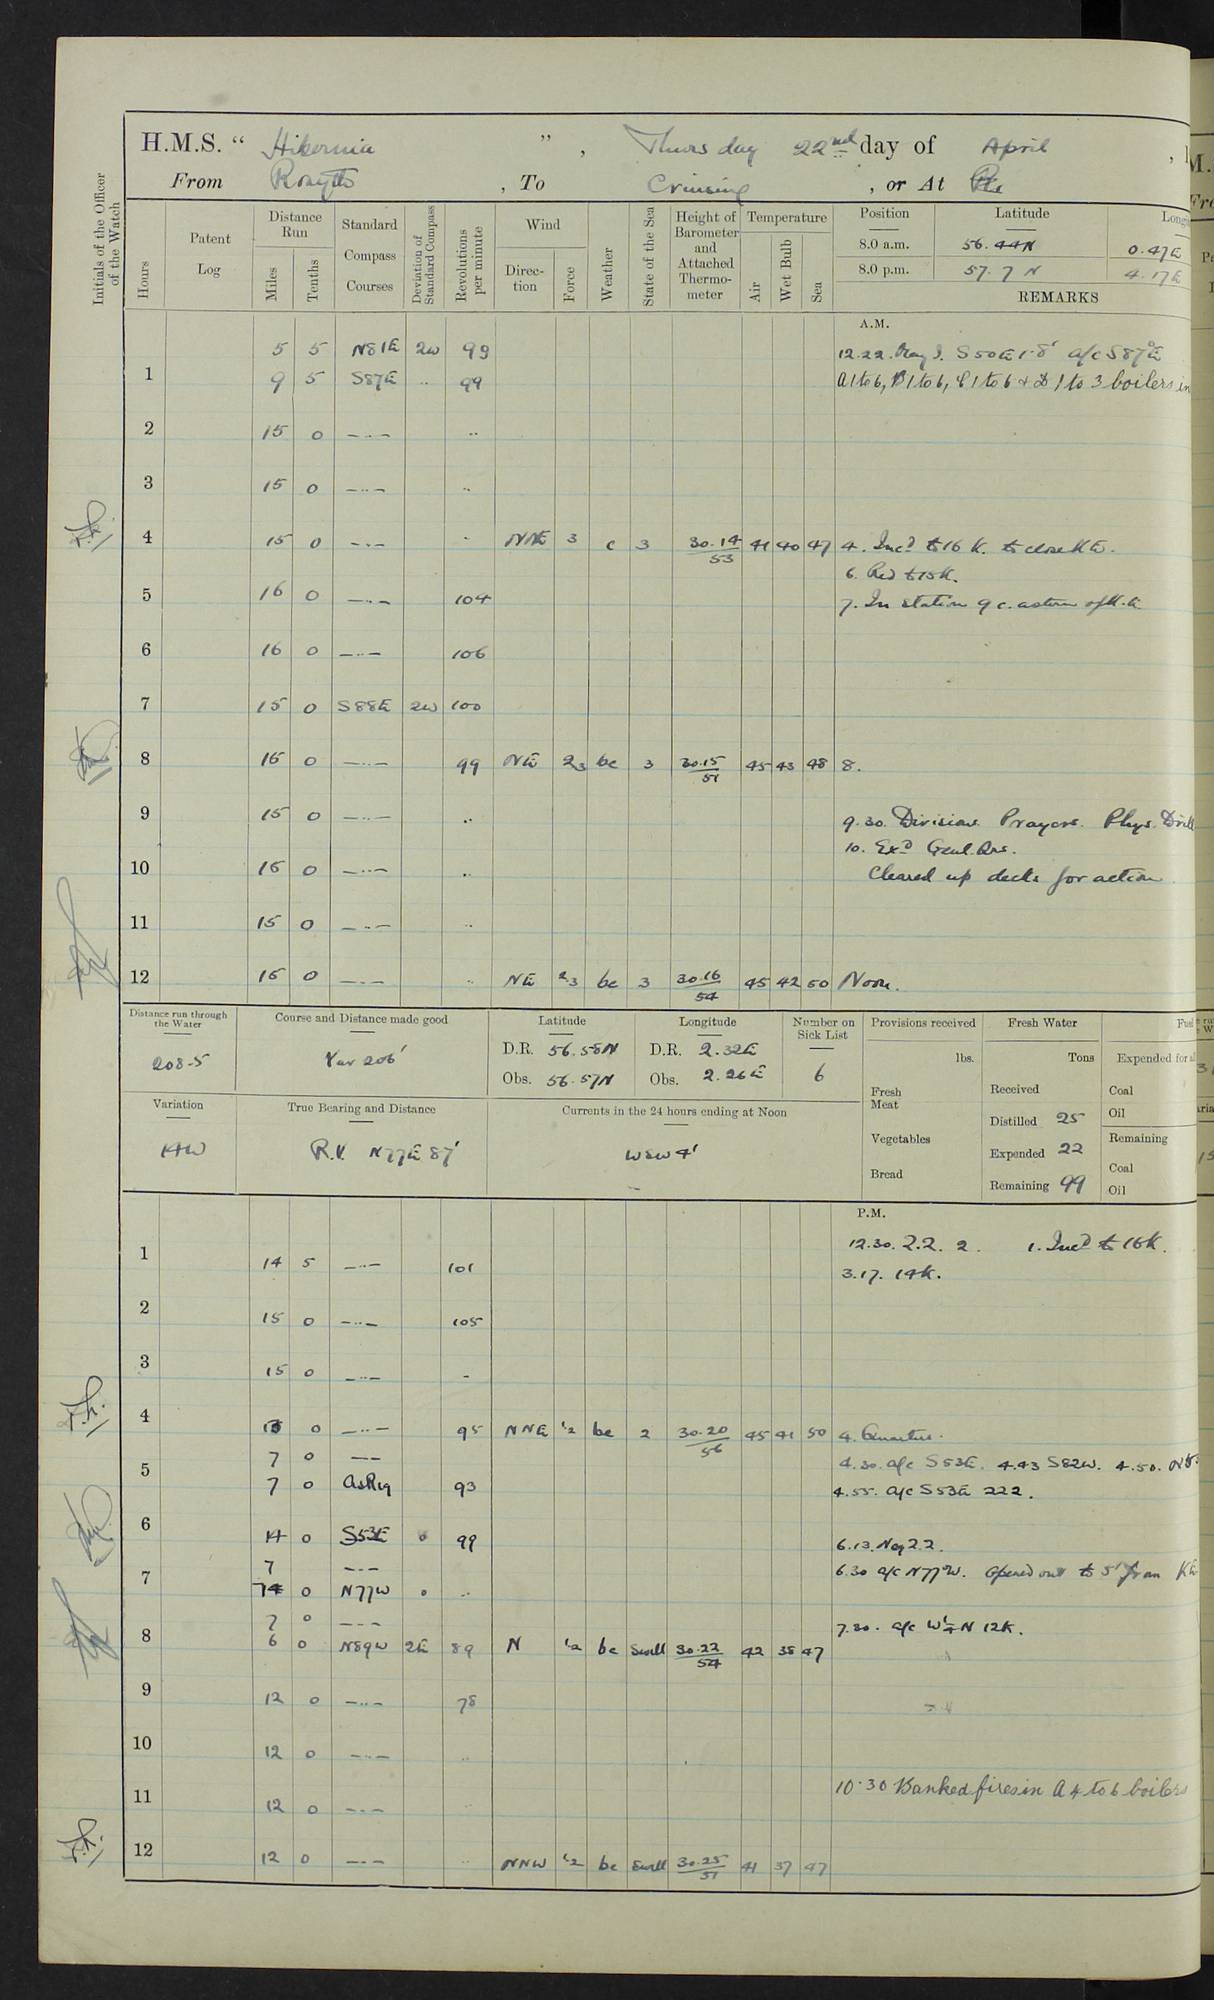 H.M.S. “ Hibernia ” , Thursday 22nd day of April ,
From Rosyth , To Cruising , or At
Initials of the Officer of the Watch
Hours
Patent Log
Distance Run
Miles
Tenths
Standard Compass Courses
Deviation of Standard Compass
Revolutions per minute
Wind
Direction
Force
Weather
State of the Sea
Height of Barometer and Attached Thermometer
Temperature
Air
Wet Bulb
Sea
Position Latitude
8.0 a.m. 56.44N 0.47E
8.0 p.m. 57.7 N 4.17E
REMARKS
A.M.
5 5 N81E 2W 99
1 9 5 S87E .. 99
12.22. S50E 1.8' a/c S87°E
A 1 to 6, B 1 to 6, C 1 to 6 & D 1 to 3 boilers in
2 15 0 —..— ..
3 15 0 —..— ..
4 15 0 —..— .. NNE 3 c 3 30.14/53 41 40 47 4. Incd to 16 K. to close K.E.
6. Red to 15K.
5 16 0 —..— 104 7. In station 9 c. astern of K.E
6 16 0 —..— 106
7 15 0 S88E 2W 100
8 15 0 —..— 99 NE 2.3 bc 3 30.15/51 45 43 48 8.
9 15 0 —..— .. 9.30. Divisions Prayers. Phys. Drill
10. Exd Genl. Qrs.
10 15 0 —..— .. Cleared up decks for action
11 15 0 —..— ..
12 15 0 —..— .. NE 2.3 bc 3 30.16/54 45 42 50 Noon.
Distance run through the Water
208.5
Course and Distance made good
206'
Latitude
D.R. 56.58N
Obs. 56.57N
Longitude
D.R. 2.32E
Obs. 2.26E
Number on Sick List
6
Provisions received
lbs.
Fresh Meat
Vegetables
Bread
Fresh Water
Tons
Received
Distilled 25
Expended 22
Remaining 99
Expended for
Coal
Oil
Remaining
Coal
Oil
Variation
14W
True Bearing and Distance
R.V. N77E 87'
Currents in the 24 hours ending at Noon
WSW 4'
P.M.
12.30. 2.2. 2. 1. Incd to 16K.
1 14 5 —..— 101 3.17. 14K.
2 15 0 —..— 105
3 15 0 —..— -
4 0 —..— 95 NNE 1.2 bc 2 30.20/56 45 41 50 4. Quarters.
7 0 —— 4.30. a/c S53E. 4.43 S82W. 4.50.
5 7 0 as Req 93 4.55. a/c S53E 222.
6 14 0 S53E 0 99 6.13. Neg 2.2.
7 —.— 6.30 a/c N77W. Opened out to 5' from K.E
7 0 N77W 0 ..
7 0 —.— 7.30. a/c W¼N 12K.
8 6 0 N89W 2E 89 N 1.2 bc Swell 30.22/54 42 38 47
9 12 0 —..— 78
10 12 0 —..— ..
10.30 Banked fires in A 4 to 6 boilers
11 12 0 —..— ..
12 12 0 —..— .. NNW 1.2 bc Swell 30.25/51 41 37 47